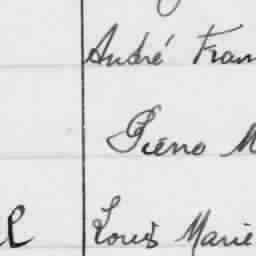 André Fran
Pierre M
Louis Marie